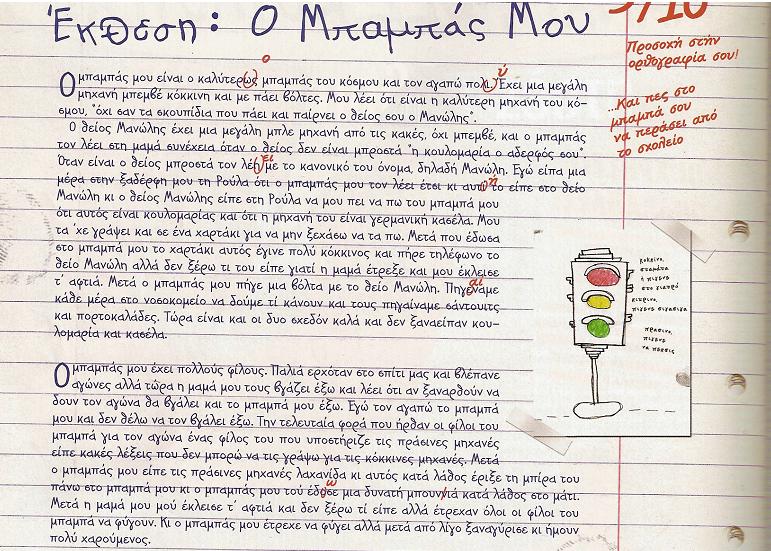 Έκθεση: Ο Μπαμπάς Μου
9/10
Προσοχή στην
ορθογραφία σου!
...Και πες στο
μπαμπά σου
να περάσει από
το σχολείο
ο
ύ
Ο μπαμπάς μου είναι ο καλύτερως μπαμπάς του κόσμου και τον αγαπώ πολι. Έχει μια μεγάλη
μηχανή μπεμβέ κόκκινη και με πάει βόλτες. Μου λέει ότι είναι η καλύτερη μηχανή του κό-
σμου, "όχι σαν τα σκουπίδια που πάει και παίρνει ο θείος σου ο Μανώλης".
Ο θείος Μανώλης έχει μια μεγάλη μπλε μηχανή από τις κακές, όχι μπεμβέ, και ο μπαμπάς
τον λέει στη μαμά συνέχεια όταν ο θείος δεν είναι μπροστά "η κουλομαρία ο αδερφός σου".
ει
Όταν είναι ο θείος μπροστά τον λέη με το κανονικό του όνομα, δηλαδή Μανώλη. Εγώ είπα μια
μέρα στην ξαδέρφη μου τη Ρούλα ότι ο μπαμπάς μου τον λέει έτσι κι αυτι το είπε στο θείο
η
Μανώλη κι ο θείος Μανώλης είπε στη Ρούλα να μου πει να πω του μπαμπά μου
ότι αυτός είναι κουλομαρίας και ότι η μηχανή του είναι γερμανική κασέλα. Μου
τα 'χε γράψει και σε ένα χαρτάκι για να μην ξεχάσω να τα πω. Μετά που έδωσα
στο μπαμπά μου το χαρτάκι αυτός έγινε πολύ κόκκινος και πήρε τηλέφωνο το
θείο Μανώλη αλλά δεν ξέρω τι του είπε γιατί η μαμά έτρεξε και μου έκλεισε
τ' αφτιά. Μετά ο μπαμπάς μου πήγε μια βόλτα με το θείο Μανώλη. Πηγέναμε
αι
κάθε μέρα στο νοσοκομείο να δούμε τί κάνουν και τους πηγαίναμε σάντουιτς
και πορτοκαλάδες. Τώρα είναι και οι δυο σχεδόν καλά και δεν ξαναείπαν κου-
λομαρία και κασέλα.
κόκκινο,
σταμάτα
ή πιγενς
στο γιατρό
κίτρινο,
πιγενς σιγασιγα
πράσινο,
πιγενς
να πεσεις
Ο μπαμπάς μου έχει πολλούς φίλους. Παλιά ερχόταν στο σπίτι μας και βλέπανε
αγώνες αλλά τώρα η μαμά μου τους βγάζει έξω και λέει ότι αν ξαναρθούν να
δουν τον αγώνα θα βγάλει και το μπαμπά μου έξω. Εγώ τον αγαπώ το μπαμπά
μου και δεν θέλω να τον βγάλει έξω. Την τελευταία φορά που ήρθαν οι φίλοι του
μπαμπά για τον αγώνα ένας φίλος του που υποστήριζε τις πράσινες μηχανές
είπε κακές λέξεις που δεν μπορώ να τις γράψω για τις κόκκινες μηχανές. Μετά
ο μπαμπάς μου είπε τις πράσινες μηχανές λαχανίδα κι αυτός κατά λάθος έριξε τη μπίρα του
πάνω στο μπαμπά μου κι ο μπαμπάς μου τού έδοσε μια δυνατή μπουνιά κατά λάθος στο μάτι.
ω
Μετά η μαμά μου μού έκλεισε τ' αφτιά και δεν ξέρω τί είπε αλλά έτρεχαν όλοι οι φίλοι του
μπαμπά να φύγουν. Κι ο μπαμπάς μου έτρεχε να φύγει αλλά μετά από λίγο ξαναγύρισε κι ήμουν
πολύ χαρούμενος.